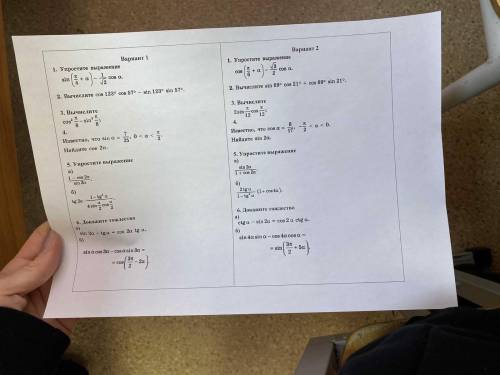 Вариант 1
1. Упростите выражение
sin(π/4 + α) − 1/√2 cos α.
2. Вычислите cos 123° cos 57° − sin 123° sin 57°.
3. Вычислите
cos² π/8 − sin² π/8;
4.
Известно, что sin α = 7/25, 0 < α < π/2.
Найдите cos 2α.
5. Упростите выражение
а)
(1 − cos 2α)/(sin 2α)
б)
6. Докажите тождество
а)
sin 2α − tg α = cos 2α tg α.
б)
sin α cos 3α − cos α sin 3α =
= cos(3π/2 − 2α)
Вариант 2
1. Упростите выражение
cos(π/6 + α) − √3/2 cos α.
2. Вычислите sin 69° cos 21° + cos 69° sin 21°.
3. Вычислите
2 sin π/12 cos π/12;
4.
Известно, что cos α = 8/17, −π/2 < α < 0.
Найдите sin 2α.
5. Упростите выражение
а)
б)
(2 tg α)/(1 − tg² α) · (1 + cos 4α).
6. Докажите тождество
а)
ctg α − sin 2α = cos 2α ctg α.
б)
sin 4α sin α − cos 4α cos α =
= sin(3π/2 + 5α).